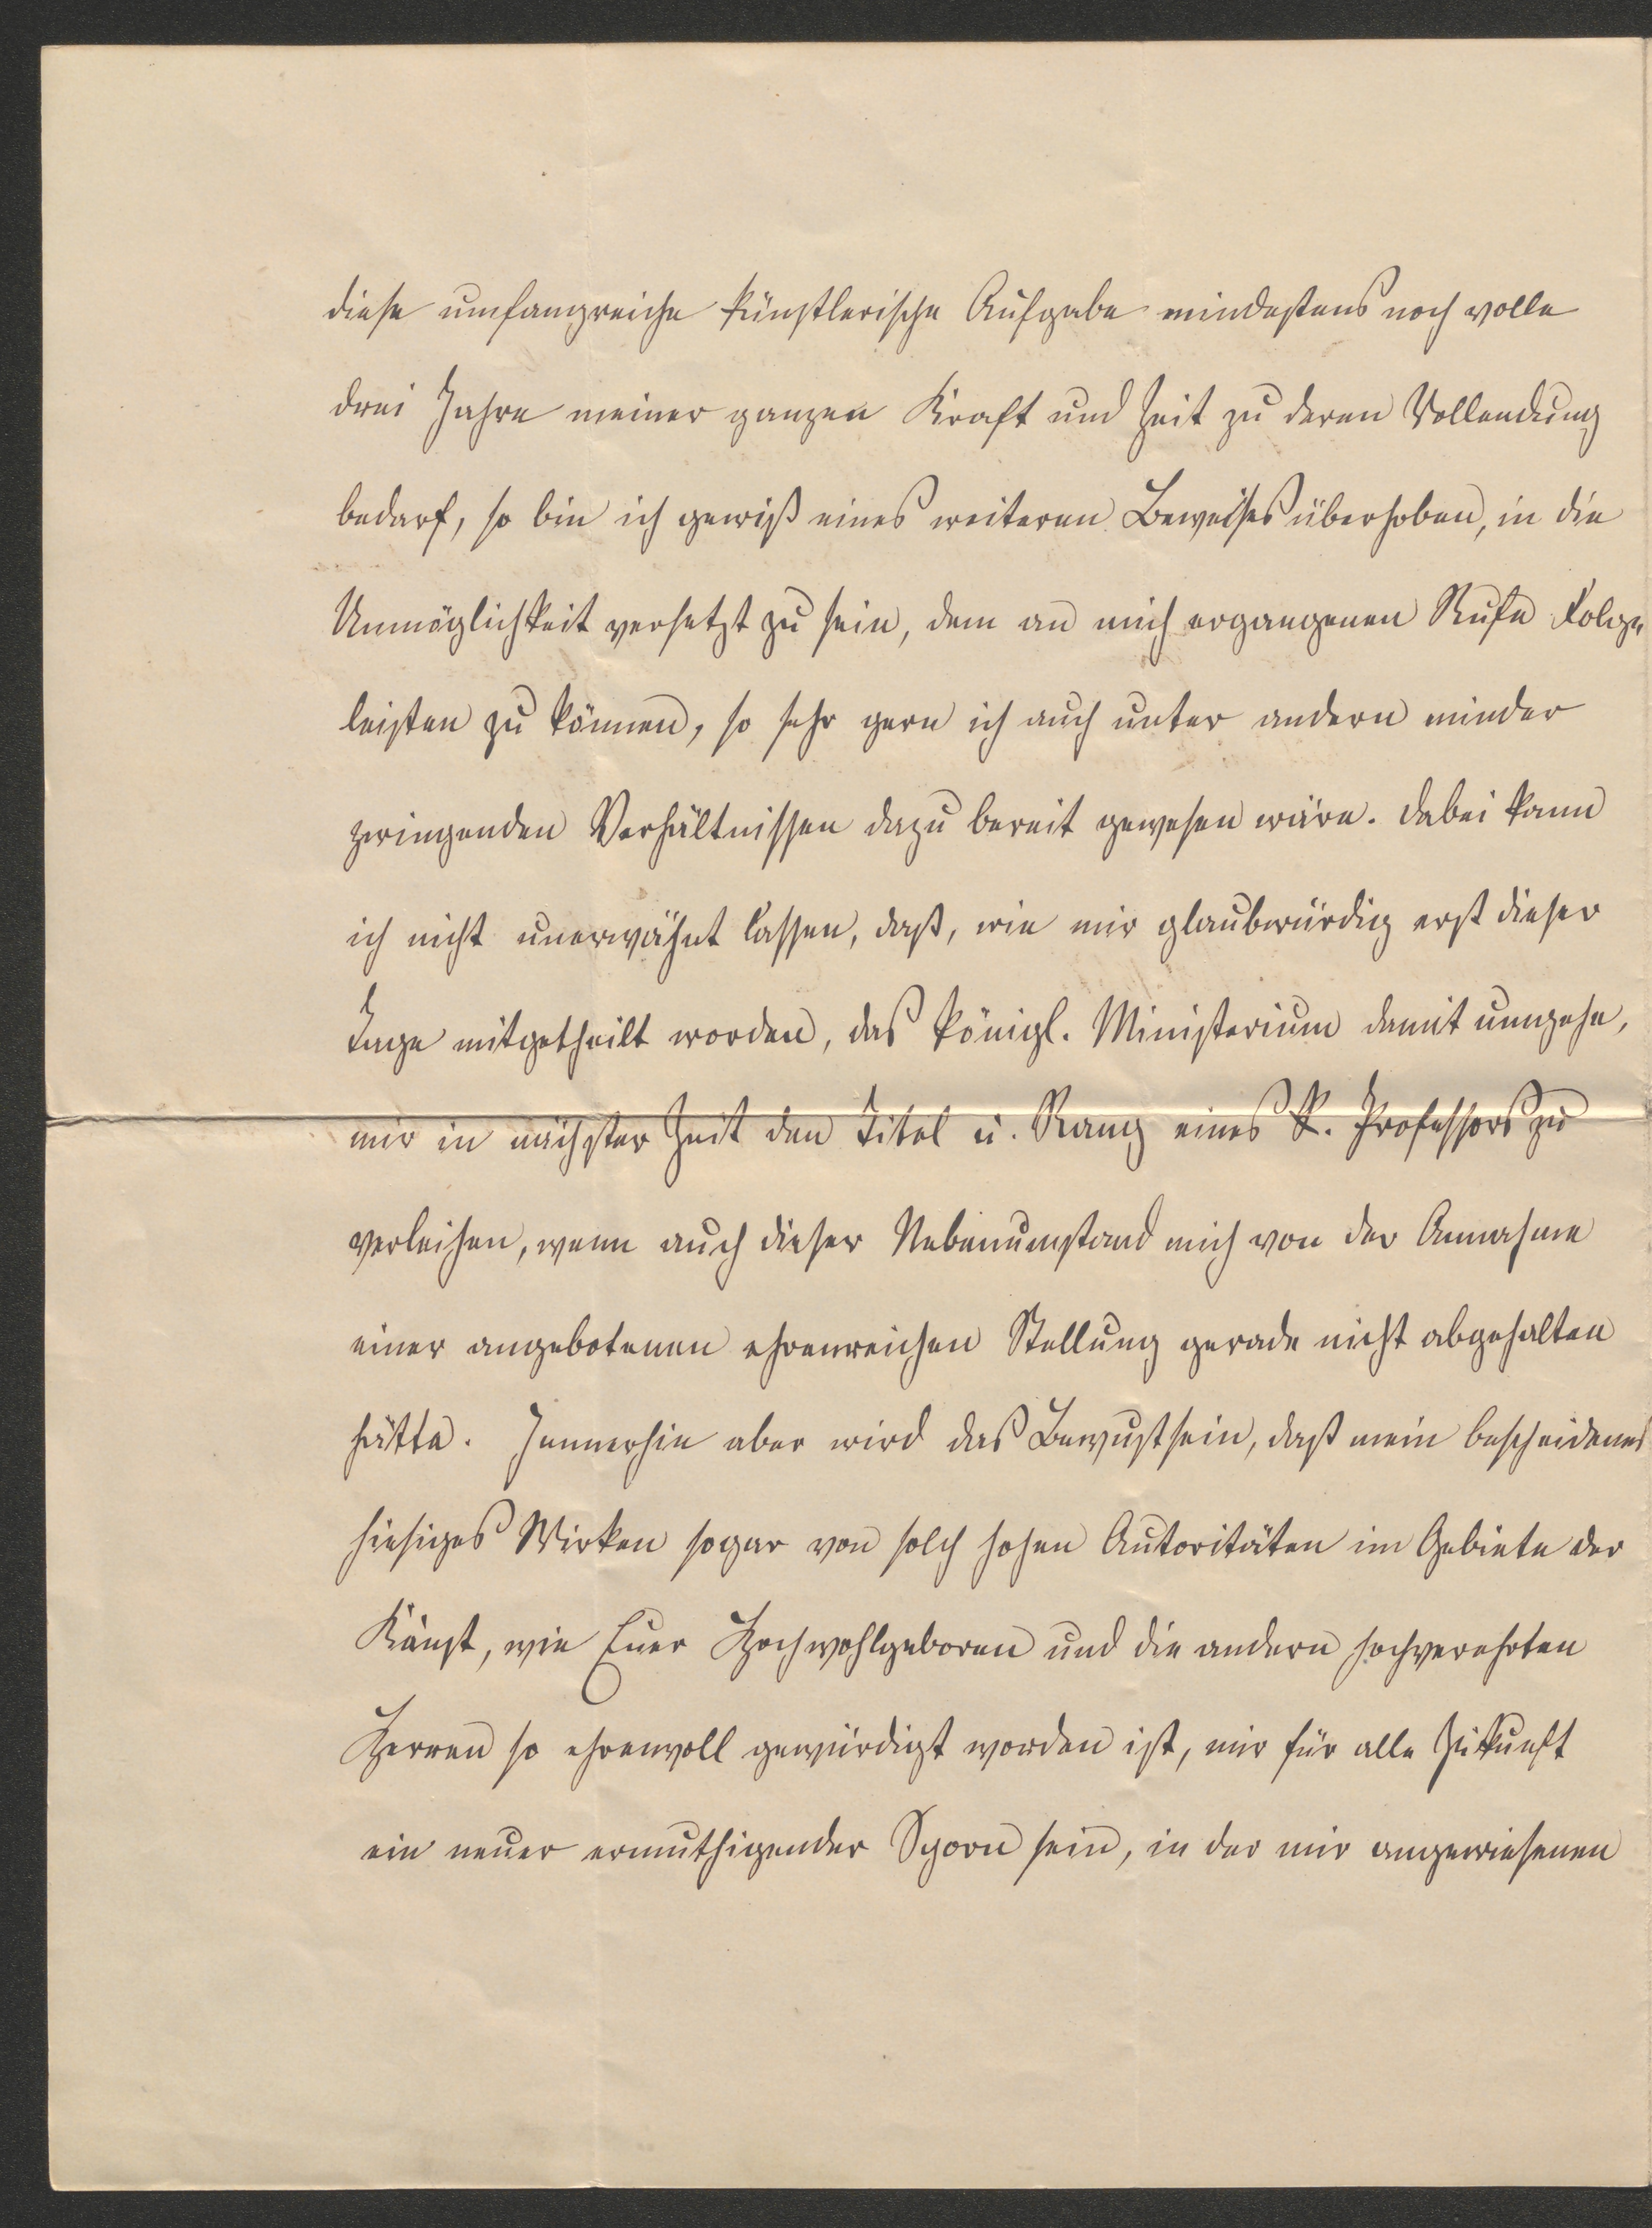 diese umfangreiche künstlerische Aufgabe mindestens noch volle
drei Jahre meiner ganzen Kraft und Zeit zu deren Vollendung
bedarf, so bin ich gewiß eines weiteren Beweises überhoben, in die
Unmöglichkeit versetzt zu sein, dem an mich ergangenen Rufe Folge
leisten zu können, so sehr gern ich auch unter andern minder
zwingenden Verhältnissen dazu bereit gewesen wäre. Dabei kann
ich nicht unerwähnt lassen, daß, wie mir glaubwürdig erst dieser
Tage mitgetheilt worden, das königl. Ministerium damit umgehe,
mir in nächster Zeit den Titel u. Rang eines k. Professors zu
verleihen, wenn auch dieser Nebenumstand mich von der Annahme
einer angebotenen ehrenreichen Stellung gerade nicht abgehalten
hätte. Immerhin aber wird das Bewußtsein, daß mein bescheidenes
hiesiges Wirken sogar von solch hohen Autoritäten im Gebiete der
Kunst, wie Euer Hochwohlgeboren und die andern hochverehrten
Herren so ehrenvoll gewürdigt worden ist, mir für alle Zukunft
ein neuer ermuthigender Sporn sein, in der mir angewiesenen